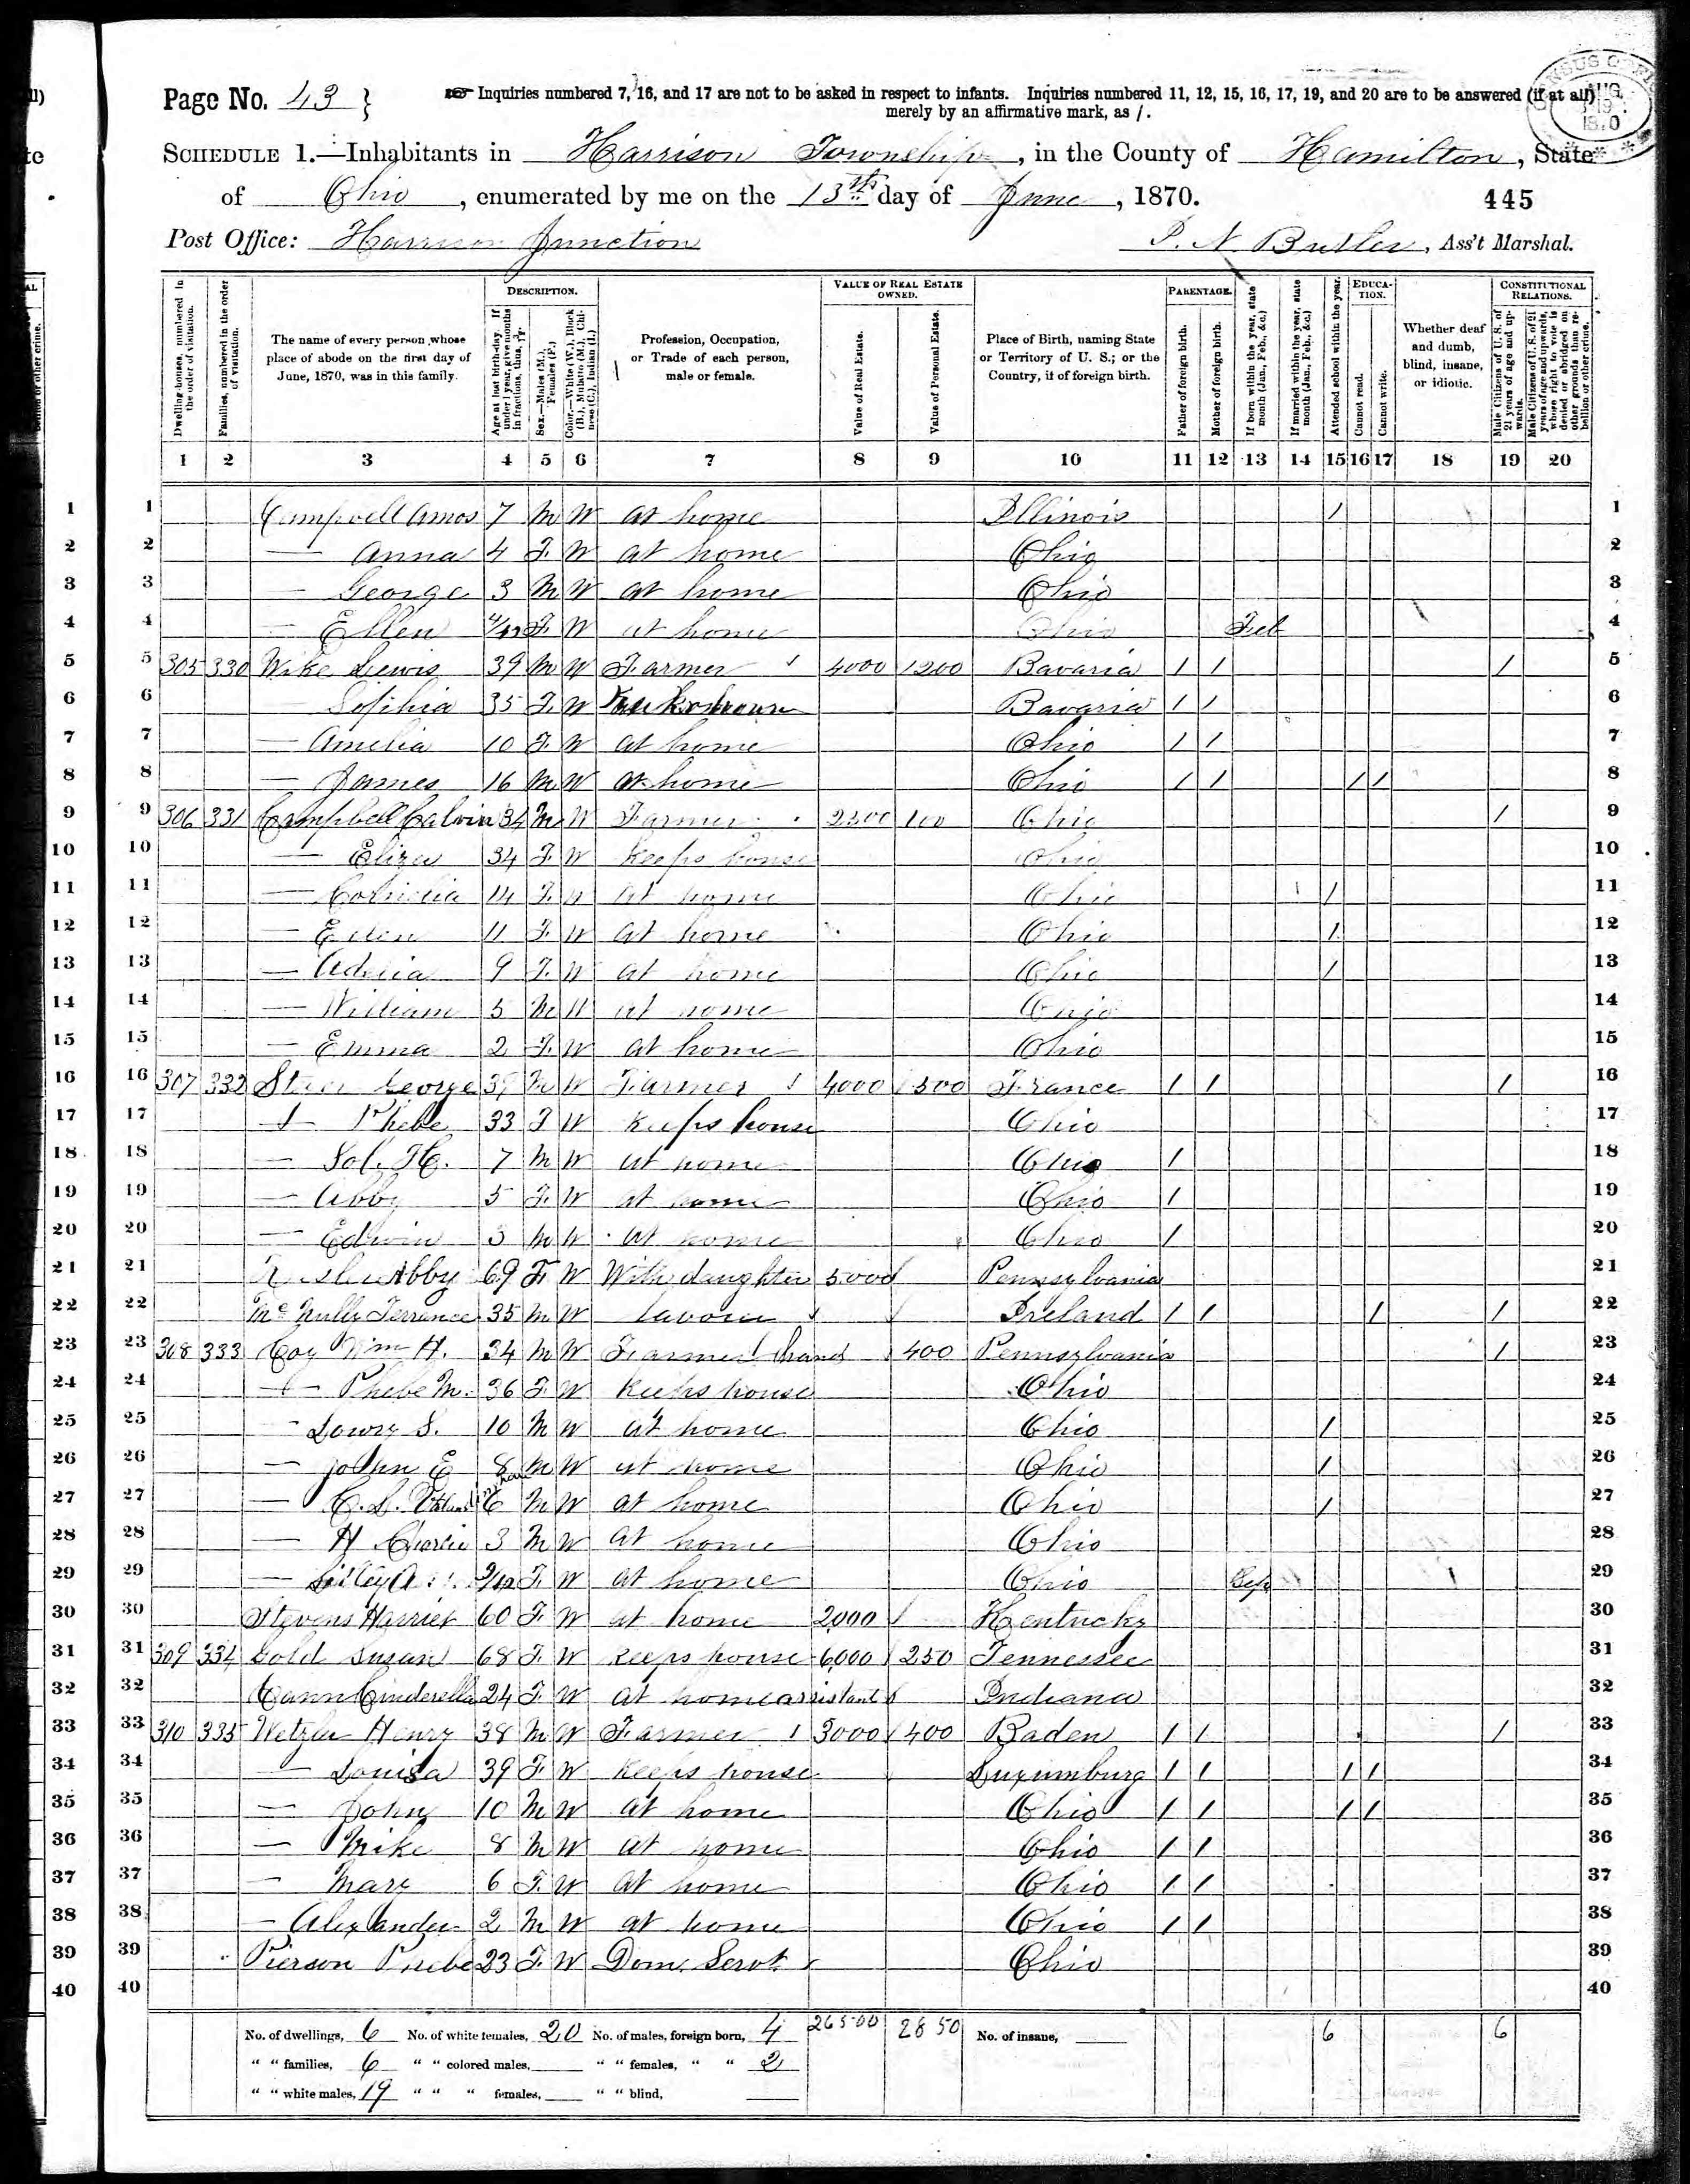 Page No. 43 } Inquiries numbered 7, 16, and 17 are not to be asked in respect to infants. Inquiries numbered 11, 12, 15, 16, 17, 19, and 20 are to be answered (if at all)
merely by an affirmative mark, as /.
SCHEDULE 1.—Inhabitants in Harrison Township, in the County of Hamilton, State
of Ohio, enumerated by me on the 13th day of June, 1870.
445
Post Office: Harrison Junction
P. N Butler, Ass't Marshal.
Dwelling-houses, numbered in the order of visitation.
Families, numbered in the order of visitation.
The name of every person whose place of abode on the first day of June, 1870, was in this family.
DESCRIPTION.
Age at last birth-day. If under 1 year, give months in fractions, thus, 3/12.
Sex.—Males (M.), Females (F.)
Color.—White (W.), Black (B.), Mulatto (M.), Chinese (C.), Indian (I.)
Profession, Occupation, or Trade of each person, male or female.
VALUE OF REAL ESTATE OWNED.
Value of Real Estate.
Value of Personal Estate.
Place of Birth, naming State or Territory of U. S.; or the Country, if of foreign birth.
PARENTAGE.
Father of foreign birth.
Mother of foreign birth.
If born within the year, state month (Jan., Feb., &c.)
If married within the year, state month (Jan., Feb., &c.)
Attended school within the year.
EDUCATION.
Cannot read.
Cannot write.
Whether deaf and dumb, blind, insane, or idiotic.
CONSTITUTIONAL RELATIONS.
Male Citizens of U. S. of 21 years of age and upwards.
Male Citizens of U. S. of 21 years of age and upwards, whose right to vote is denied or abridged on other grounds than rebellion or other crime.
1 2 3 4 5 6 7 8 9 10 11 12 13 14 15 16 17 18 19 20
1 Campbell Amos 7 M W at home Illinois / 1
2 — Anna 4 F W at home Ohio 2
3 — George 3 M W at home Ohio 3
4 — Ellen 4/12 F W at home Ohio Feb 4
5 305 330 Wike Lewis 39 M W Farmer 4000 1200 Bavaria / / / 5
6 — Sophia 35 F W Bavaria / / 6
7 — Amelia 10 F W at home Ohio / / 7
8 — James 16 M W at home Ohio / / / / 8
9 306 331 Campbell Calvin 34 M W Farmer 2500 100 Ohio / 9
10 — Eliza 34 F W Keeps house Ohio 10
11 — Cornelia 14 F W at home Ohio / 11
12 — Ellen 11 F W at home Ohio / 12
13 — Adelia 9 F W at home Ohio / 13
14 — William 5 M W at home Ohio 14
15 — Emma 2 F W at home Ohio 15
16 307 332 George 39 M W Farmer 4000 500 France / / / 16
17 — Phebe 33 F W Keeps house Ohio 17
18 — Sol. H. 7 M W at home Ohio / 18
19 — Abby 5 F W at home Ohio / 19
20 — Edwin 3 M W at home Ohio / 20
21 Abby 69 F W With daughter 5000 Pennsylvania 21
22 McNully Terrence 35 M W labores Ireland / / / / 22
23 308 333 Coy Wm H. 34 M W Farmer hand 400 Pennsylvania / 23
24 — Phebe M. 36 F W Keeps house Ohio 24
25 — Lowry S. 10 M W at home Ohio / 25
26 — John E 8 M W at home Ohio / 26
27 — C. L. 6 M W at home Ohio / 27
28 — H Charlie 3 M W at home Ohio 28
29 — 9/12 F W at home Ohio Sep 29
30 Stevens Harriet 60 F W at home 2000 Kentucky 30
31 309 334 Gold Susan 68 F W Keeps house 6000 250 Tennessee 31
32 Cann Cinderella 24 F W at home assistant Indiana 32
33 310 335 Wetzler Henry 38 M W Farmer 3000 400 Baden / / / 33
34 — Louisa 39 F W Keeps house Luxumburg / / / / 34
35 — John 10 M W at home Ohio / / / / 35
36 — Mike 8 M W at home Ohio / / 36
37 — Mary 6 F W at home Ohio / / 37
38 — Alexander 2 M W at home Ohio / / 38
39 Pierson Phebe 23 F W Dom. Servt. Ohio 39
40 40
No. of dwellings, 6 No. of white females, 20 No. of males, foreign born, 4 26500 2850 No. of insane, 6 6
" " families, 6 " " colored males, " " females, " " 2
" " white males, 19 " " " females, " " blind,